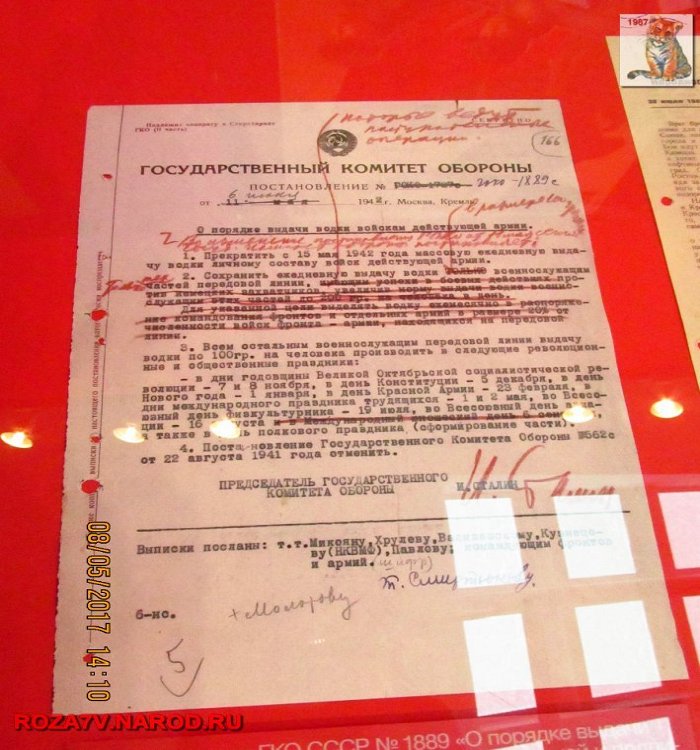 1967
Подлежит возврату в Секретариат
ГКО (II часть)
которые ведут
наступательные
операции.
166
ГОСУДАРСТВЕННЫЙ КОМИТЕТ ОБОРОНЫ
ПОСТАНОВЛЕНИЕ № ГОКО-1889с
6 июня
от 11. мая 1942 г. Москва, Кремль
О порядке выдачи водки войскам действующей армии.
1. Прекратить с 15 мая 1942 года массовую ежедневную выда-
чу водки личному составу войск действующей армии.
2. Сохранить ежедневную выдачу водки только военнослужащим
частей передовой линии, имеющим успехи в боевых действиях про-
тив немецких захватчиков, увеличив норму выдачи водки военно-
служащим этих частей до 200 гр. на человека в день.
Для указанной цели выделять водку ежемесячно в распоряже-
ние командования фронтов и отдельных армий в размере 20% от
численности войск фронта - армии, находящихся на передовой
линии.
3. Всем остальным военнослужащим передовой линии выдачу
водки по 100гр. на человека производить в следующие революцион-
ные и общественные праздники:
- в дни годовщины Великой Октябрьской социалистической ре-
волюции - 7 и 8 ноября, в день Конституции - 5 декабря, в день
Нового года - 1 января, в день Красной Армии - 23 февраля, в
дни международного праздника трудящихся - 1 и 2 мая, во Всесо-
юзный день физкультурника - 19 июля, во Всесоюзный день авиа-
ции - 16 августа и в Международный юношеский день - 6 сентября,
а также в день полкового праздника (сформирование части).
4. Постановление Государственного Комитета Обороны №562с
от 22 августа 1941 года отменить.
ПРЕДСЕДАТЕЛЬ ГОСУДАРСТВЕННОГО
КОМИТЕТА ОБОРОНЫ И.СТАЛИН
Выписки посланы: т.т.Микояну,Хрулеву,Василевскому,Кузнецо-
ву(НКВМФ),Павлову; командующим фронтов
и армий. (шифр)
т. Смиртюкову.
6-ис.
5
08/05/2017 14:10
ROZAYV.NAROD.RU
ГКО СССР № 1889 «О порядке выдачи